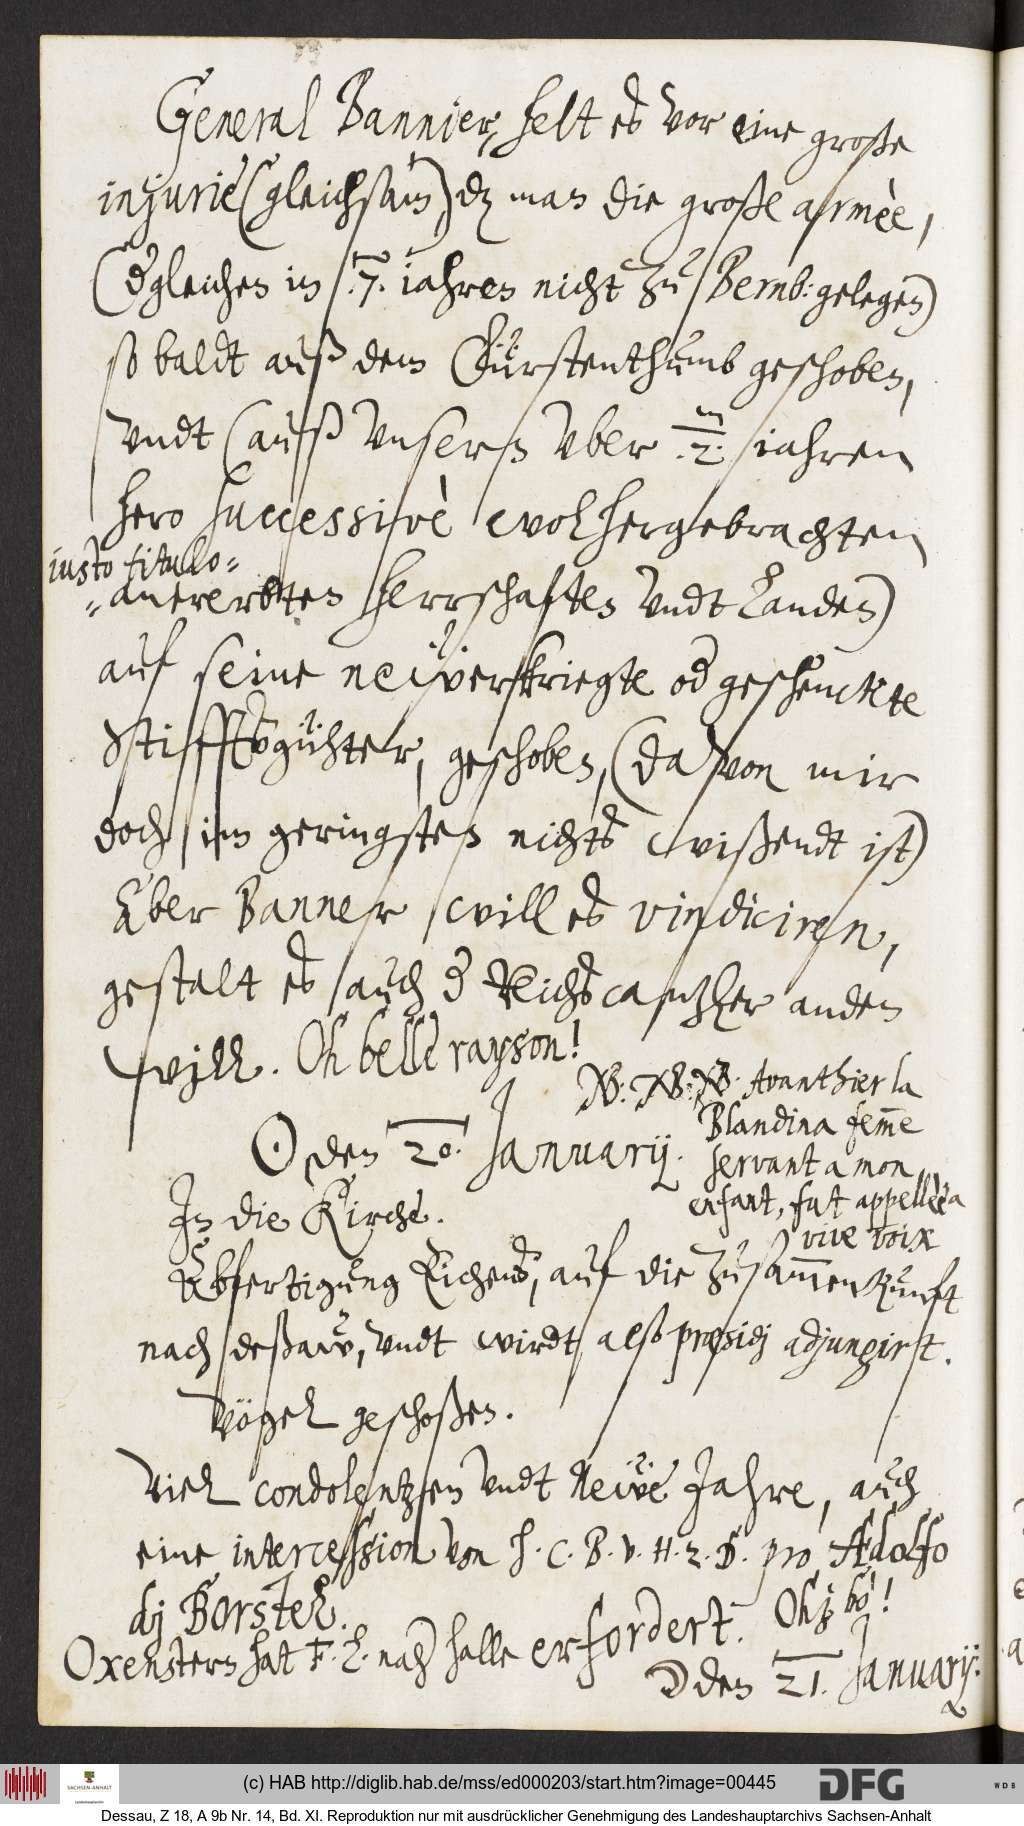 General Bannier, helt es vor eine große
injurie (gleichsam) dz man die große armèe,
(dergleichen in .7. iahren nicht zu Bernb: gelegen)
so baldt auß dem Fürstenthumb geschoben,
undt (auß unsern uber .2. iahren
hero successivè wolhergebrachten
iusto titulo
anererbten herrschaften undt Landen)
auf seine neüverkriegte od geschenckte
Stifftsgühter, geschoben, (davon mir
doch im geringsten nichts wißendt ist)
Aber Banner will es vindiciren,
gestalt es auch d Reichscantzler anden
will. Oh belle rayson!
NB: NB: NB: Avanthier la
Blandina femme
servant a mon
enfant, fut appellèe a
vive voix
☉ den 20. January.
In die Kirche.
Abfertigung Eichens, auf die zusammenkunft
nach deßaw, undt wirdt alß præsidj adjungirt.
Vögel geschoßen.
Viel condolentzen undt Neüe Jahre, auch
eine intercession von h. C. B. v. H. z. B. pro Adolfo
dj Börstel.
Oxenstern hat F. L. nach halle erfordert. Ohj bo!
☽ den 21. January:
(c) HAB http://diglib.hab.de/mss/ed000203/start.htm?image=00445
SACHSEN-ANHALT
Landeshauptarchiv
DFG
WDB
Dessau, Z 18, A 9b Nr. 14, Bd. XI. Reproduktion nur mit ausdrücklicher Genehmigung des Landeshauptarchivs Sachsen-Anhalt